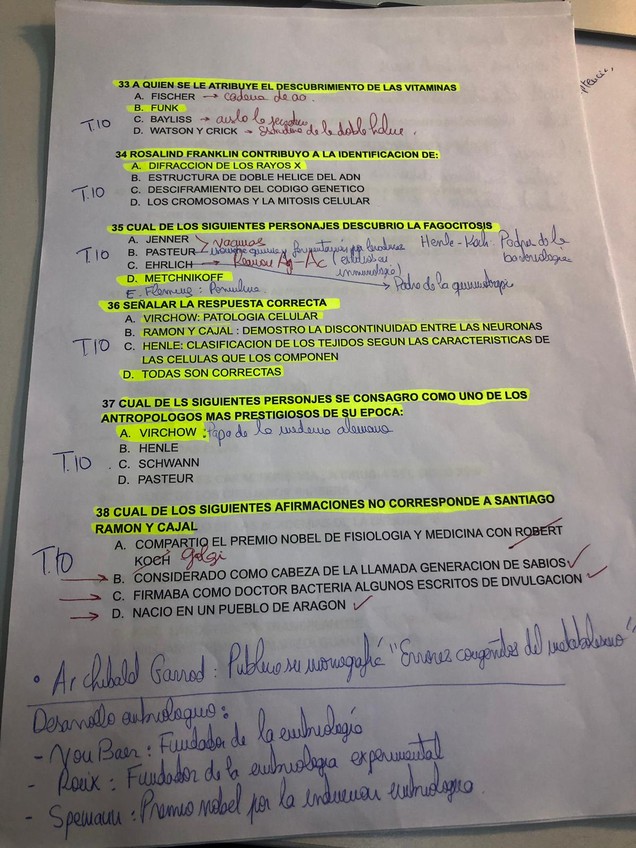 33 A QUIEN SE LE ATRIBUYE EL DESCUBRIMIENTO DE LAS VITAMINAS
A. FISCHER → cadena de aa.
B. FUNK
T.10 C. BAYLISS → aislo la
D. WATSON Y CRICK → Estructura de la doble helice.
34 ROSALIND FRANKLIN CONTRIBUYO A LA IDENTIFICACION DE:
A. DIFRACCION DE LOS RAYOS X
B. ESTRUCTURA DE DOBLE HELICE DEL ADN
T.10 C. DESCIFRAMIENTO DEL CODIGO GENETICO
D. LOS CROMOSOMAS Y LA MITOSIS CELULAR
35 CUAL DE LOS SIGUIENTES PERSONAJES DESCUBRIO LA FAGOCITOSIS
A. JENNER vacunas
T.10 B. PASTEUR Henle-Koch: Padre de la bacteriologia
C. EHRLICH → Reaccion Ag-Ac (
inmunologia)
D. METCHNIKOFF → Padre de la quimioterapia
E. Fleming: Penicilina
36 SEÑALAR LA RESPUESTA CORRECTA
A. VIRCHOW: PATOLOGIA CELULAR
B. RAMON Y CAJAL : DEMOSTRO LA DISCONTINUIDAD ENTRE LAS NEURONAS
T.10 C. HENLE: CLASIFICACION DE LOS TEJIDOS SEGUN LAS CARACTERISTICAS DE
LAS CELULAS QUE LOS COMPONEN
D. TODAS SON CORRECTAS
37 CUAL DE LS SIGUIENTES PERSONJES SE CONSAGRO COMO UNO DE LOS
ANTROPOLOGOS MAS PRESTIGIOSOS DE SU EPOCA:
A. VIRCHOW : Papa de la medicina alemana
B. HENLE
T.10 C. SCHWANN
D. PASTEUR
38 CUAL DE LOS SIGUIENTES AFIRMACIONES NO CORRESPONDE A SANTIAGO
RAMON Y CAJAL
A. COMPARTIO EL PREMIO NOBEL DE FISIOLOGIA Y MEDICINA CON ROBERT
T.10 KOCH Golgi
B. CONSIDERADO COMO CABEZA DE LA LLAMADA GENERACION DE SABIOS
C. FIRMABA COMO DOCTOR BACTERIA ALGUNOS ESCRITOS DE DIVULGACION
D. NACIO EN UN PUEBLO DE ARAGON
• Archibald Garrod: Publico su monografía "Errores congénitos del metabolismo"
Desarrollo embriologico:
- Von Baer: Fundador de la embriología
- Roux: Fundador de la embriologia experimental
- Spemann: Premio nobel por la induccion embriologica.